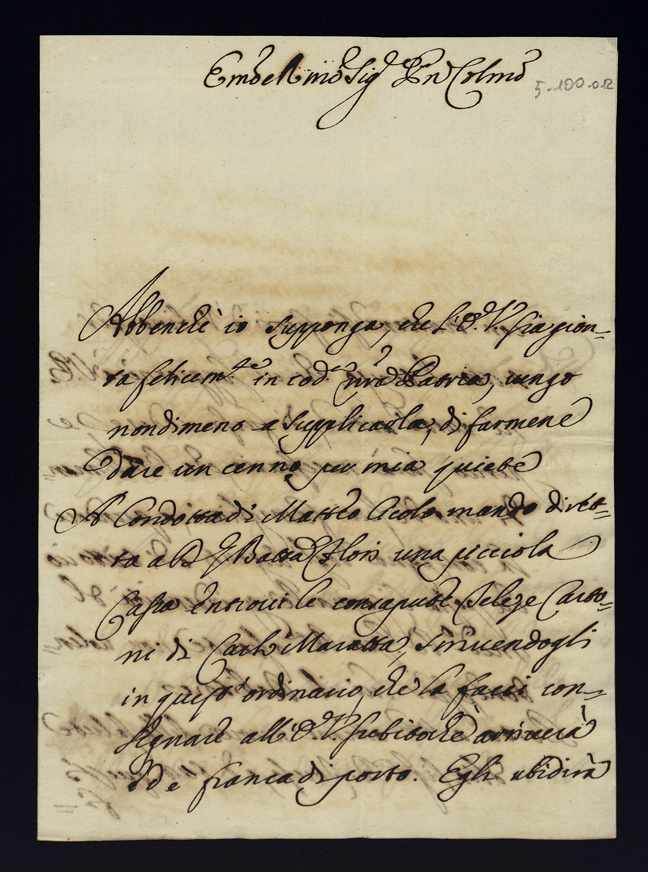 Sig.r P̃ron Col.mo
5-100.012
Abbenche io supponga, che l'E. V. sia gion-
ta felicem.te in cod.a Patria, vengo
nondimeno a supplicarla, di farmene
dare un cenno per mia quiete
A Condotta di Matteo mando diret-
ta al S.r una picciola
Cassa entroui le consapute Carto-
ni di Carlo Maratta, scriuendogli
in quest'ordinario, che la facci con-
segnare all'E. V. subito che arriuerà
e franca di porto. Egli ubidirà